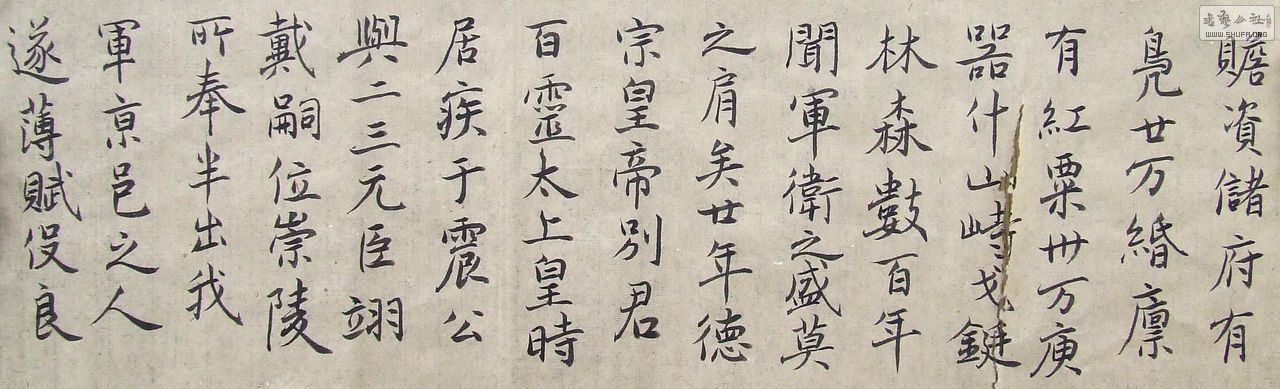 贍資儲府有
鳧廿万緡廪
有紅粟卅万庾
器什山峙戈鋋
林森數百年
聞軍衛之盛莫
之肩矣廿年德
宗皇帝別君
百靈太上皇時
居疾于震公
與二三元臣翊
戴嗣位崇陵
所奉半出我
軍亰邑之人
遂薄賦伇良
WWW.SHUFA.ORG